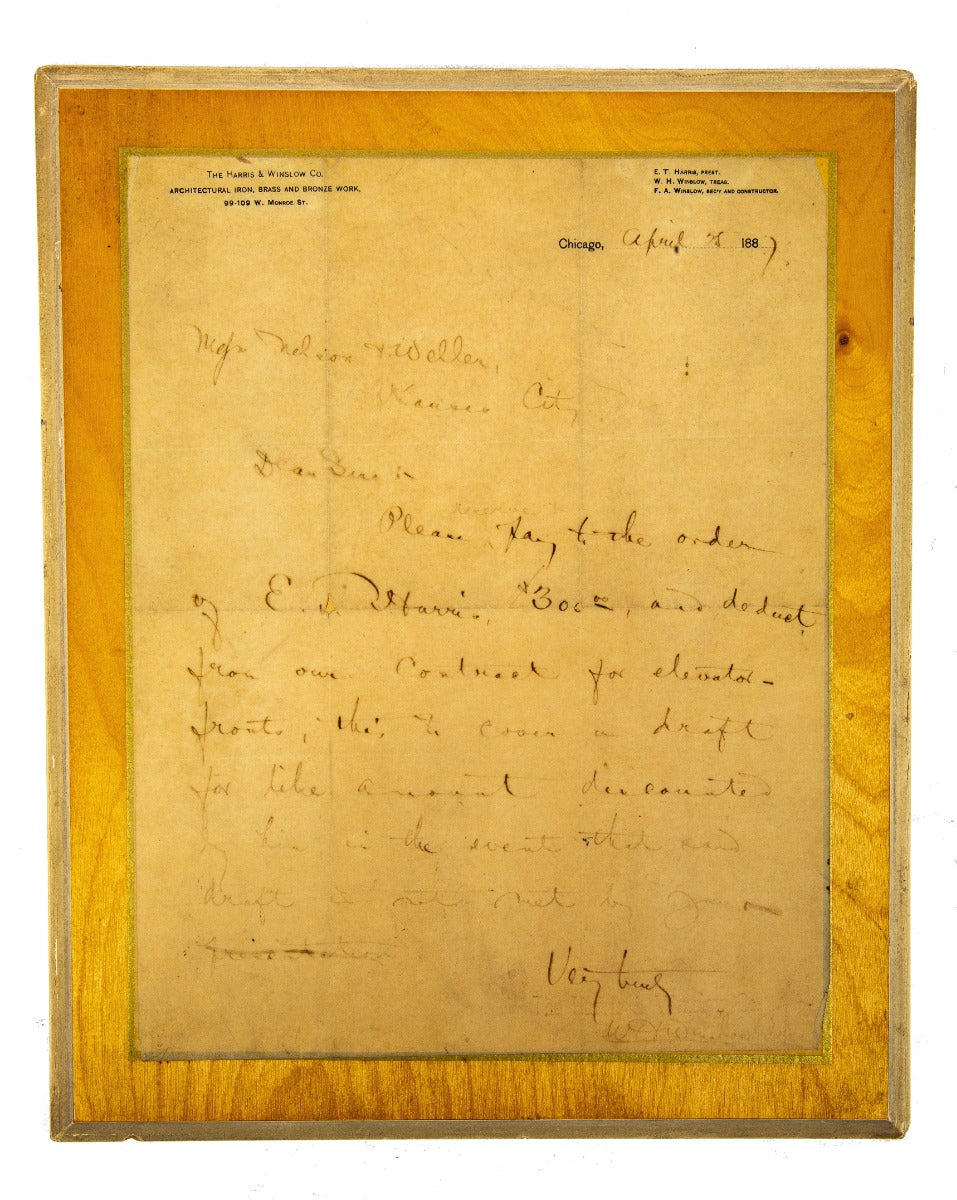 THE HARRIS & WINSLOW CO.
ARCHITECTURAL IRON, BRASS AND BRONZE WORK,
99-109 W. MONROE ST.
E. T. HARRIS, PREST.
W. H. WINSLOW, TREAS.
F. A. WINSLOW, SEC'Y AND CONSTRUCTOR.
Chicago, April 1887.
Nelson & Weller,
Kansas City
Dear Sirs :-
Please pay to the order
of E. T. Harris, $300 00, and deduct
from our contract for elevator-
fronts; this to cover a draft
for like amount discounted
by him in the event that said
draft is not met by
Very truly